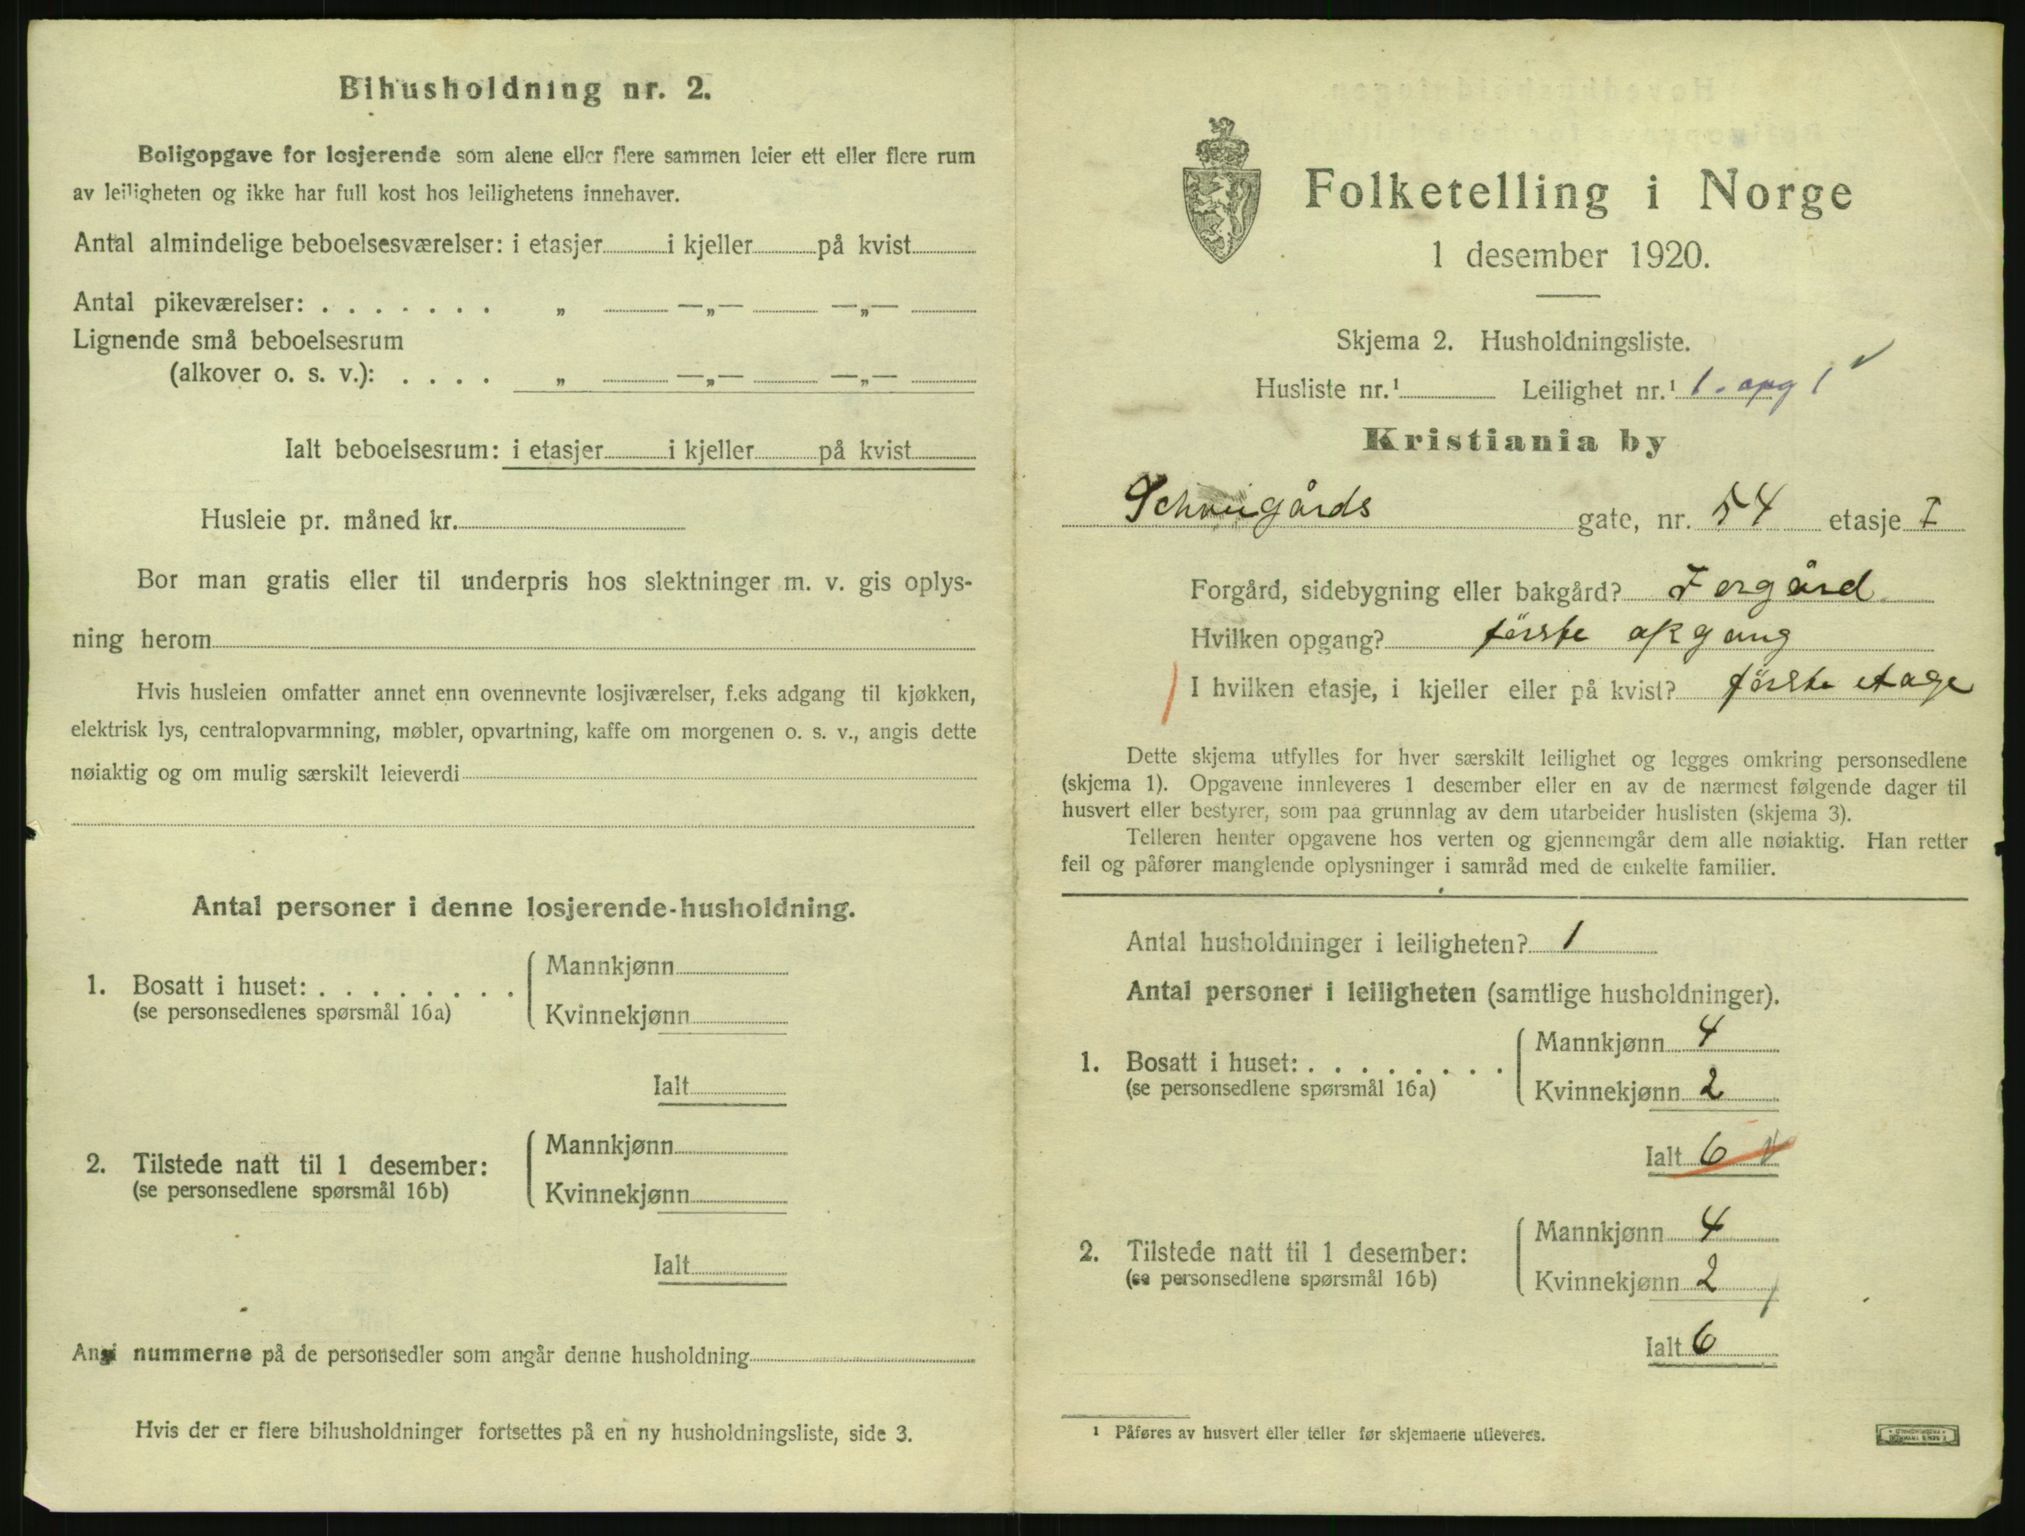 Bihusholdning nr. 2.
Boligopgave for losjerende som alene eller flere sammen leier ett eller flere rum
av leiligheten og ikke har full kost hos leilighetens innehaver.
Antal almindelige beboelsesværelser: i etasjer i kjeller på kvist
Antal pikeværelser: . . . . . . . „ —„— —„—
Lignende små beboelsesrum
(alkover o. s. v.): . . . . „ —„— —„—
Ialt beboelsesrum: i etasjer i kjeller på kvist
Husleie pr. måned kr.
Bor man gratis eller til underpris hos slektninger m. v. gis oplys-
ning herom
Hvis husleien omfatter annet enn ovennevnte losjiværelser, f.eks adgang til kjøkken,
elektrisk lys, centralopvarmning, møbler, opvartning, kaffe om morgenen o. s. v., angis dette
nøiaktig og om mulig særskilt leieverdi
Antal personer i denne losjerende-husholdning.
1. Bosatt i huset: . . . . . . . . Mannkjønn
(se personsedlenes spørsmål 16a) Kvinnekjønn
Ialt
2. Tilstede natt til 1 desember: Mannkjønn
(se personsedlene spørsmål 16b) Kvinnekjønn
Ialt
Angi nummerne på de personsedler som angår denne husholdning
Hvis der er flere bihusholdninger fortsettes på en ny husholdningsliste, side 3.
Folketelling i Norge
1 desember 1920.
Skjema 2. Husholdningsliste.
Husliste nr.¹ Leilighet nr.¹ 1. opg 1
Kristiania by
Schveigårds gate, nr. 54 etasje I
Forgård, sidebygning eller bakgård? Forgård
Hvilken opgang? første opgang
I hvilken etasje, i kjeller eller på kvist? første etage
Dette skjema utfylles for hver særskilt leilighet og legges omkring personsedlene
(skjema 1). Opgavene innleveres 1 desember eller en av de nærmest følgende dager til
husvert eller bestyrer, som paa grunnlag av dem utarbeider huslisten (skjema 3).
Telleren henter opgavene hos verten og gjennemgår dem alle nøiaktig. Han retter
feil og påfører manglende oplysninger i samråd med de enkelte familier.
Antal husholdninger i leiligheten? 1
Antal personer i leiligheten (samtlige husholdninger).
1. Bosatt i huset: . . . . . . . . Mannkjønn 4
(se personsedlene spørsmål 16a) Kvinnekjønn 2
Ialt 6
2. Tilstede natt til 1 desember: Mannkjønn 4
(se personsedlene spørsmål 16b) Kvinnekjønn 2
Ialt 6
¹ Påføres av husvert eller teller før skjemaene utleveres.